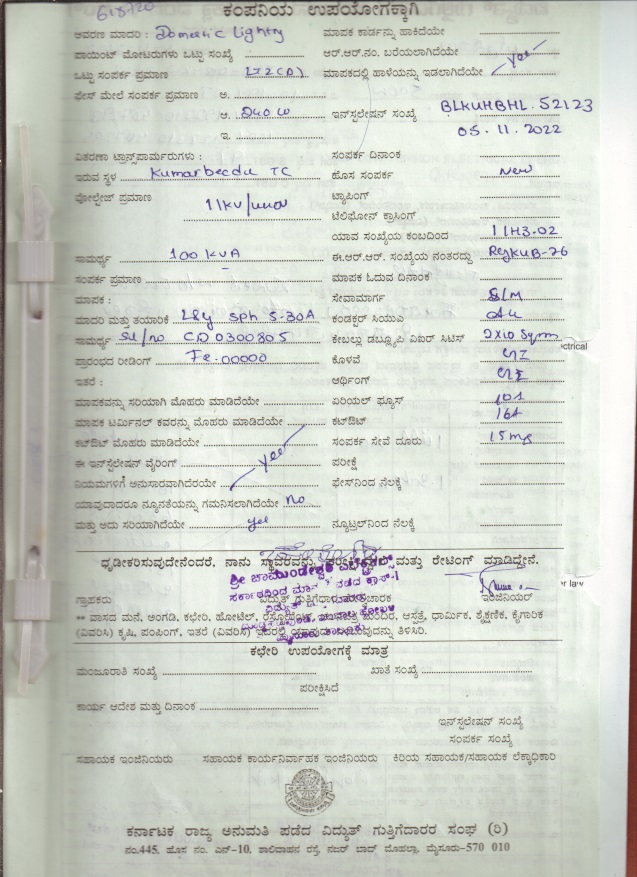 618720
ಕಂಪನಿಯ ಉಪಯೋಗಕ್ಕಾಗಿ
ಆವರಣ ಮಾದರಿ : Domestic Lighting ಮಾಪಕ ಕಾರ್ಡನ್ನು ಹಾಕಿದೆಯೇ
ಪಾಯಿಂಟ್ ಮೋಟರುಗಳು ಒಟ್ಟು ಸಂಖ್ಯೆ ಆರ್.ಆರ್.ನಂ. ಬರೆಯಲಾಗಿದೆಯೇ
ಒಟ್ಟು ಸಂಪರ್ಕ ಪ್ರಮಾಣ LT2(A) ಮಾಪಕದಲ್ಲಿ ಹಾಳೆಯನ್ನು ಇಡಲಾಗಿದೆಯೇ yes
ಫೇಸ್ ಮೇಲೆ ಸಂಪರ್ಕ ಪ್ರಮಾಣ ಅ.
ಆ. 240 W ಇನ್‌ಸ್ಟಲೇಷನ್ ಸಂಖ್ಯೆ BLKUHBHL.52123
ಇ. 05.11.2022
ವಿತರಣಾ ಟ್ರಾನ್ಸ್‌ಪಾರ್ಮರುಗಳು : ಸಂಪರ್ಕ ದಿನಾಂಕ
ಇರುವ ಸ್ಥಳ Kumarbeedu TC ಹೊಸ ಸಂಪರ್ಕ New
ವೋಲ್ಟೇಜ್ ಪ್ರಮಾಣ 11KV/ ಟ್ಯಾಪಿಂಗ್
ಟೆಲಿಫೋನ್ ಕ್ರಾಸಿಂಗ್
ಯಾವ ಸಂಖ್ಯೆಯ ಕಂಬದಿಂದ 11H3.02
ಸಾಮರ್ಥ್ಯ 100 KVA ಈ.ಆರ್.ಆರ್. ಸಂಖ್ಯೆಯ ನಂತರದ್ದು ReJKUB-76
ಸಂಪರ್ಕ ಪ್ರಮಾಣ ಮಾಪಕ ಓದುವ ದಿನಾಂಕ
ಮಾಪಕ : ಸೇವಾಮಾರ್ಗ S/M
ಮಾದರಿ ಮತ್ತು ತಯಾರಿಕೆ L&y Sph 5-30A ಕಂಡಕ್ಟರ್ ಸಿಯುಎ Alu
ಸಾಮರ್ಥ್ಯ Sl/no CD0300805 ಕೇಬಲ್ಲು ಡಬ್ಲ್ಯೂಪಿ ವಿಐಆರ್ ಸಿಟಿಸ್ 2x10 Sqmm
ಪ್ರಾರಂಭದ ರೀಡಿಂಗ್ Fe.00000 ಕೊಳವೆ GI
ಇತರೆ : ಆರ್ಥಿಂಗ್ GI
ಮಾಪಕವನ್ನು ಸರಿಯಾಗಿ ಮೊಹರು ಮಾಡಿದೆಯೇ ಏರಿಯಲ್ ಫ್ಯೂಸ್ 10A
ಮಾಪಕ ಟರ್ಮಿನಲ್ ಕವರನ್ನು ಮೊಹರು ಮಾಡಿದೆಯೇ ಕಟ್‌ಔಟ್ 16A
ಕಟ್‌ಔಟ್ ಮೊಹರು ಮಾಡಿದೆಯೇ ಸಂಪರ್ಕ ಸೇವೆ ದೂರು 15 mg
ಈ ಇನ್‌ಸ್ಟಲೇಷನ್ ವೈರಿಂಗ್ yes ಪರೀಕ್ಷೆ
ನಿಯಮಗಳಿಗೆ ಅನುಸಾರವಾಗಿದೆರಯೇ ಫೇಸ್‌ನಿಂದ ನೆಲಕ್ಕೆ
ಯಾವುದಾದರೂ ನ್ಯೂನತೆಯನ್ನು ಗಮನಿಸಲಾಗಿದೆಯೇ no
ಮತ್ತು ಅದು ಸರಿಯಾಗಿದೆಯೇ yes ನ್ಯೂಟ್ರಲ್‌ನಿಂದ ನೆಲಕ್ಕೆ
ಧೃಡೀಕರಿಸುವುದೇನೆಂದರೆ, ನಾನು ಸ್ಥಾವರವನ್ನು ಮತ್ತು ರೇಟಿಂಗ್ ಮಾಡಿದ್ದೇನೆ.
ಶ್ರೀ ಚಾಮುಂಡೇಶ್ವರಿ ಎಲೆಕ್ಟ್ರಿಕಲ್ಸ್
ಗ್ರಾಹಕರು ವಿದ್ಯುತ್ ಗುತ್ತಿಗೆದಾರ ಇಂಜಿನಿಯರ್
** ವಾಸದ ಮನೆ, ಅಂಗಡಿ, ಕಛೇರಿ, ಹೋಟೆಲ್, ಮಂದಿರ, ಆಸ್ಪತ್ರೆ, ಧಾರ್ಮಿಕ, ಶೈಕ್ಷಣಿಕ, ಕೈಗಾರಿಕ
(ವಿವರಿಸಿ) ಕೃಷಿ, ಪಂಪಿಂಗ್, ಇತರೆ (ವಿವರಿಸಿ) ತಿಳಿಸಿರಿ.
ಕಛೇರಿ ಉಪಯೋಗಕ್ಕೆ ಮಾತ್ರ
ಮಂಜೂರಾತಿ ಸಂಖ್ಯೆ ಖಾತೆ ಸಂಖ್ಯೆ
ಪರೀಕ್ಷಿಸಿದೆ
ಕಾರ್ಯ ಆದೇಶ ಮತ್ತು ದಿನಾಂಕ
ಇನ್‌ಸ್ಟಲೇಷನ್ ಸಂಖ್ಯೆ
ಸಂಪರ್ಕ ಸಂಖ್ಯೆ
ಸಹಾಯಕ ಇಂಜಿನಿಯರು ಸಹಾಯಕ ಕಾರ್ಯನಿರ್ವಾಹಕ ಇಂಜಿನಿಯರು ಕಿರಿಯ ಸಹಾಯಕ/ಸಹಾಯಕ ಲೆಕ್ಕಾಧಿಕಾರಿ
ಕರ್ನಾಟಕ ರಾಜ್ಯ ಅನುಮತಿ ಪಡೆದ ವಿದ್ಯುತ್ ಗುತ್ತಿಗೆದಾರರ ಸಂಘ (ರಿ)
ನಂ.445, ಹೊಸ ನಂ. ಎನ್-10, ಶಾಲಿವಾಹನ ರಸ್ತೆ, ನಜರ್ ಬಾದ್ ಮೊಹಲ್ಲಾ, ಮೈಸೂರು-570 010